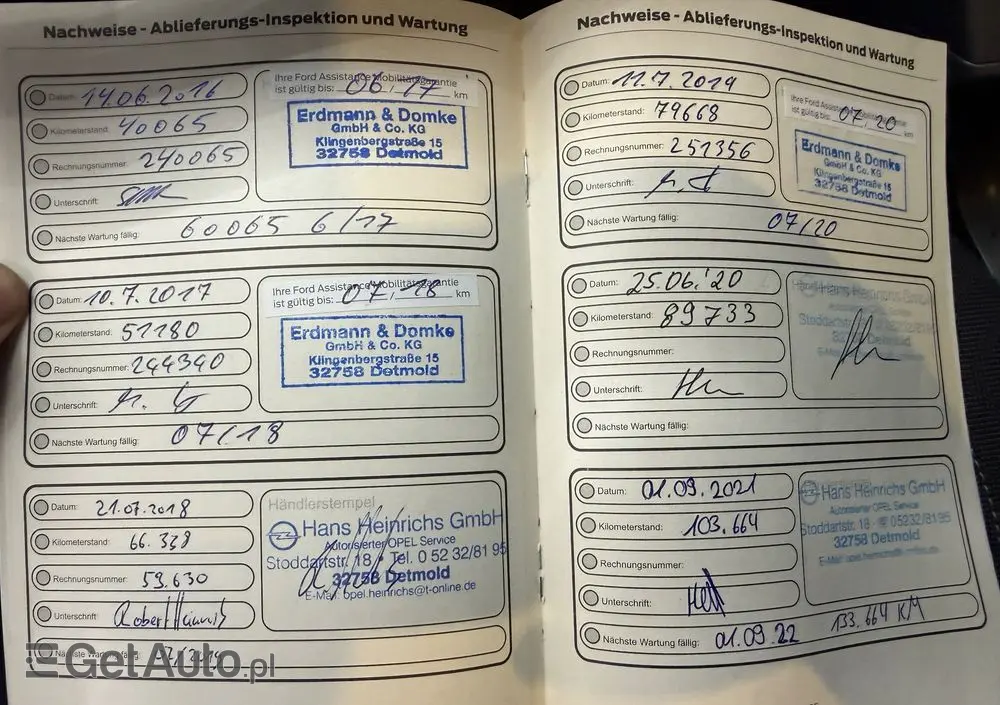 Nachweise - Ablieferungs-Inspektion und Wartung
Datum: 14.06.2016
Kilometerstand: 40065
Rechnungsnummer: 240065
Unterschrift:
Nächste Wartung fällig: 60065 6/17
Ihre Ford Assistance Mobilitätsgarantie
ist gültig bis: 06/17 km
Erdmann & Domke
GmbH & Co. KG
Klingenbergstraße 15
32758 Detmold
Datum: 10.7.2017
Kilometerstand: 51180
Rechnungsnummer: 244340
Unterschrift:
Nächste Wartung fällig: 07/18
Ihre Ford Assistance Mobilitätsgarantie
ist gültig bis: 07/18 km
Erdmann & Domke
GmbH & Co. KG
Klingenbergstraße 15
32758 Detmold
Datum: 21.07.2018
Kilometerstand: 66.328
Rechnungsnummer: 53.630
Unterschrift: Robert Heinrichs
Nächste Wartung fällig:
Händlerstempel
Hans Heinrichs GmbH
Autorisierter OPEL Service
Stoddartstr. 18 • Tel. 0 52 32/81 95
32758 Detmold
E-Mail: opel.heinrichs@t-online.de
GetAuto.pl
Nachweise - Ablieferungs-Inspektion und Wartung
Datum: 11.7.2019
Kilometerstand: 79668
Rechnungsnummer: 251356
Unterschrift:
Nächste Wartung fällig: 07/20
Ihre Ford Assistance
ist gültig bis: 07/20 km
Erdmann & Domke
GmbH & Co. KG
Klingenbergstraße 15
32758 Detmold
Datum: 25.06.'20
Kilometerstand: 89733
Rechnungsnummer:
Unterschrift:
Nächste Wartung fällig:
Hans Heinrichs GmbH
Datum: 01.09.2021
Kilometerstand: 103.664
Rechnungsnummer:
Unterschrift:
Nächste Wartung fällig: 01.09.22 133.664 KM
Hans Heinrichs GmbH
Autorisierter OPEL Service
Stoddartstr. 18 05232/81 95
32758 Detmold